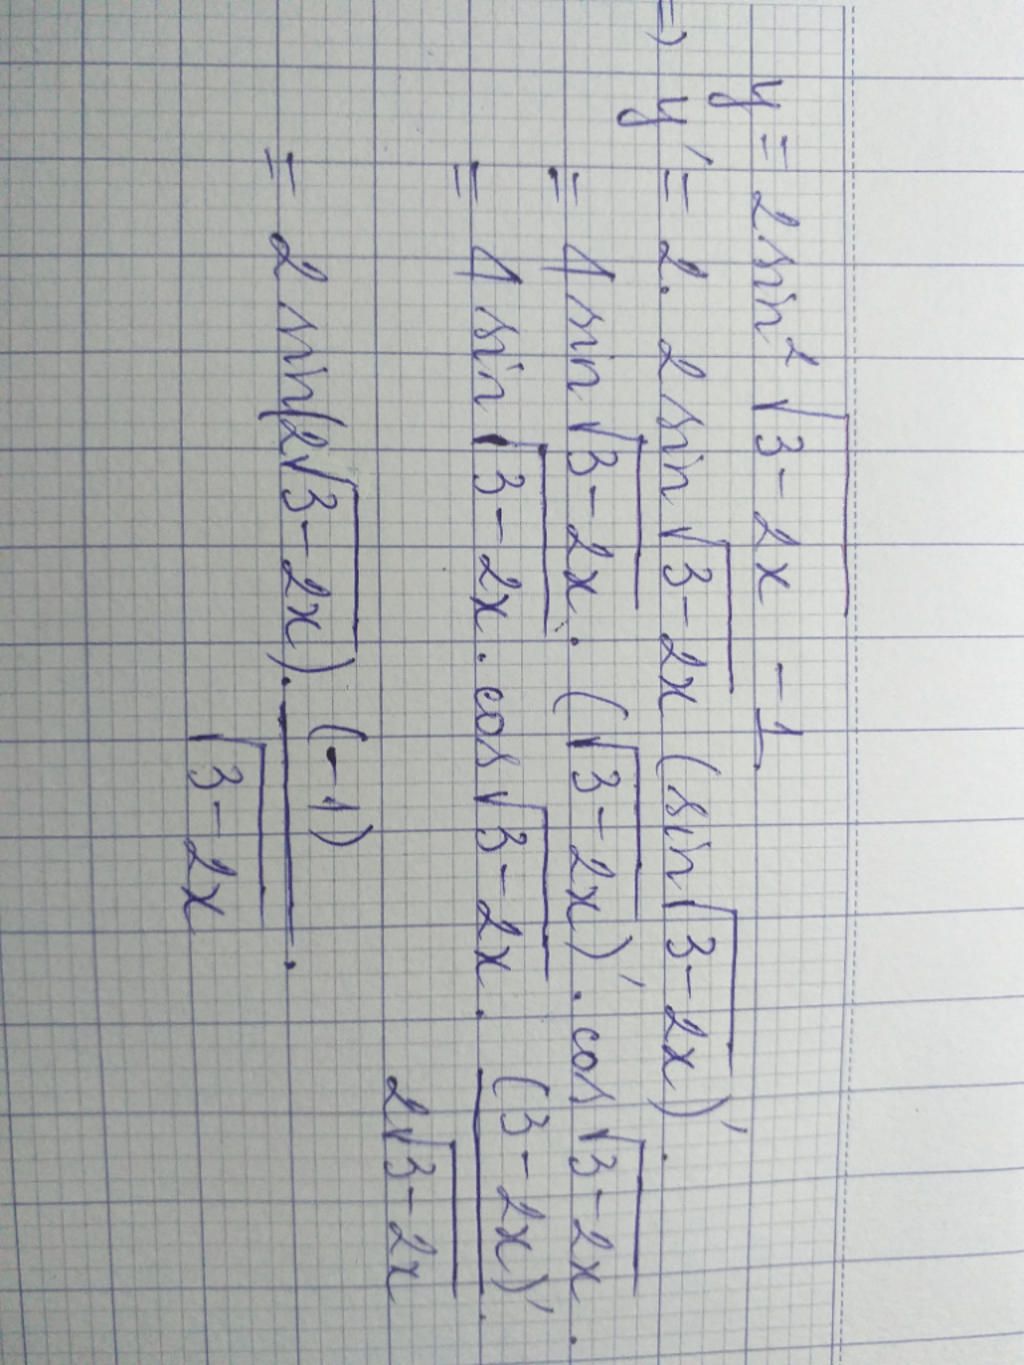 y = 2sin² √(3-2x) - 1
=> y' = 2. 2 sin √(3-2x) (sin √(3-2x))'.
= 4 sin √(3-2x). (√(3-2x))'. cos √(3-2x).
= 4 sin √(3-2x). cos √(3-2x). (3-2x)' / 2√(3-2x).
= 2 sin(2√(3-2x)). (-1) / √(3-2x).